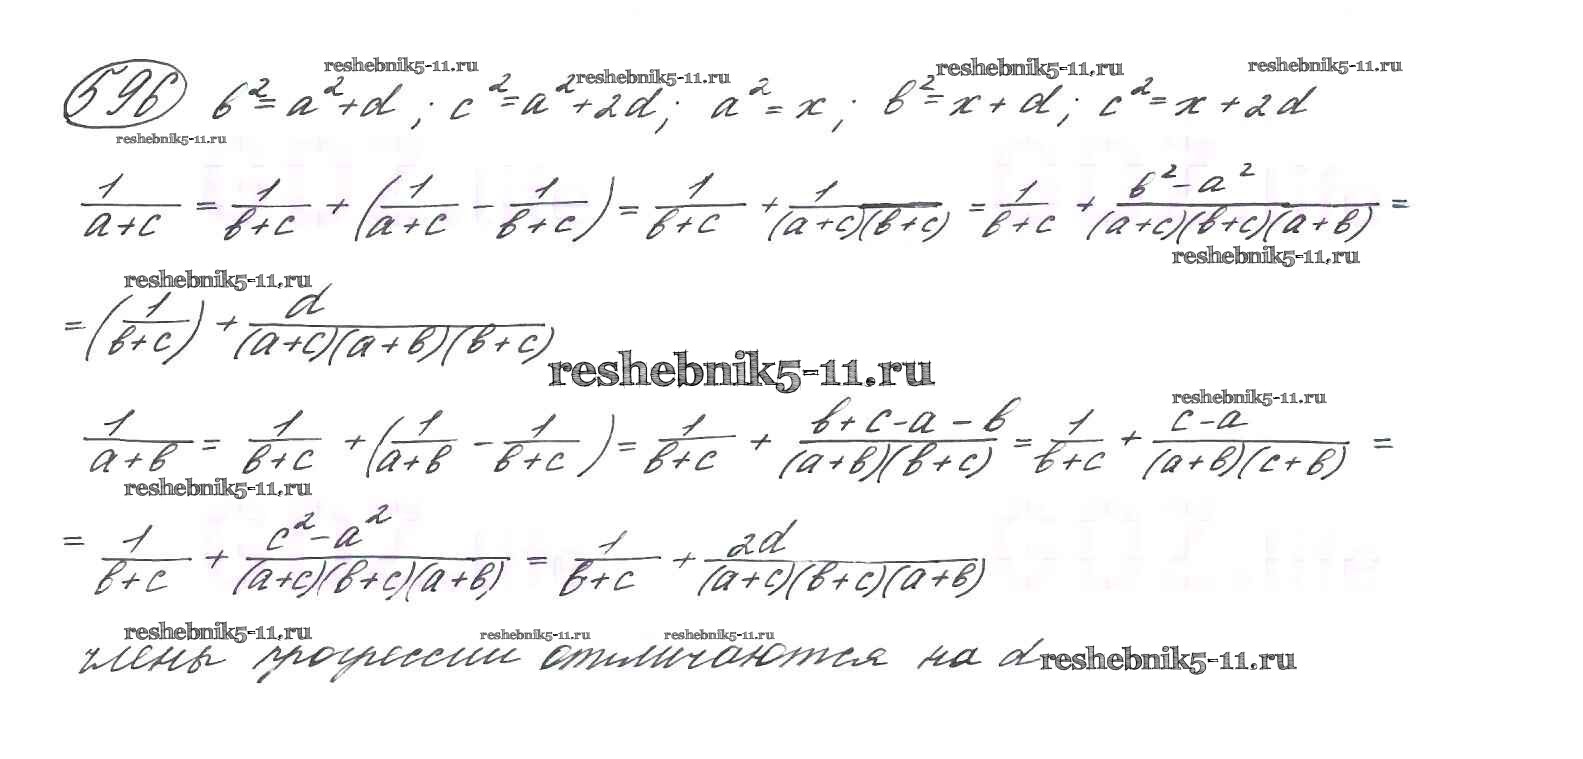 reshebnik5-11.ru reshebnik5-11.ru reshebnik5-11.ru reshebnik5-11.ru
596 b² = a² + d ; c² = a² + 2d ; a² = x ; b² = x + d ; c² = x + 2d
reshebnik5-11.ru
1/(a+c) = 1/(b+c) + (1/(a+c) - 1/(b+c)) = 1/(b+c) + 1/((a+c)(b+c)) = 1/(b+c) + (b² - a²)/((a+c)(b+c)(a+b)) =
reshebnik5-11.ru
reshebnik5-11.ru
= (1/(b+c)) + d/((a+c)(a+b)(b+c))
reshebnik5-11.ru
reshebnik5-11.ru
1/(a+b) = 1/(b+c) + (1/(a+b) - 1/(b+c)) = 1/(b+c) + (b+c-a-b)/((a+b)(b+c)) = 1/(b+c) + (c-a)/((a+b)(c+b)) =
reshebnik5-11.ru
= 1/(b+c) + (c² - a²)/((a+c)(b+c)(a+b)) = 1/(b+c) + 2d/((a+c)(b+c)(a+b))
reshebnik5-11.ru reshebnik5-11.ru reshebnik5-11.ru
члены прогрессии отличаются на d reshebnik5-11.ru